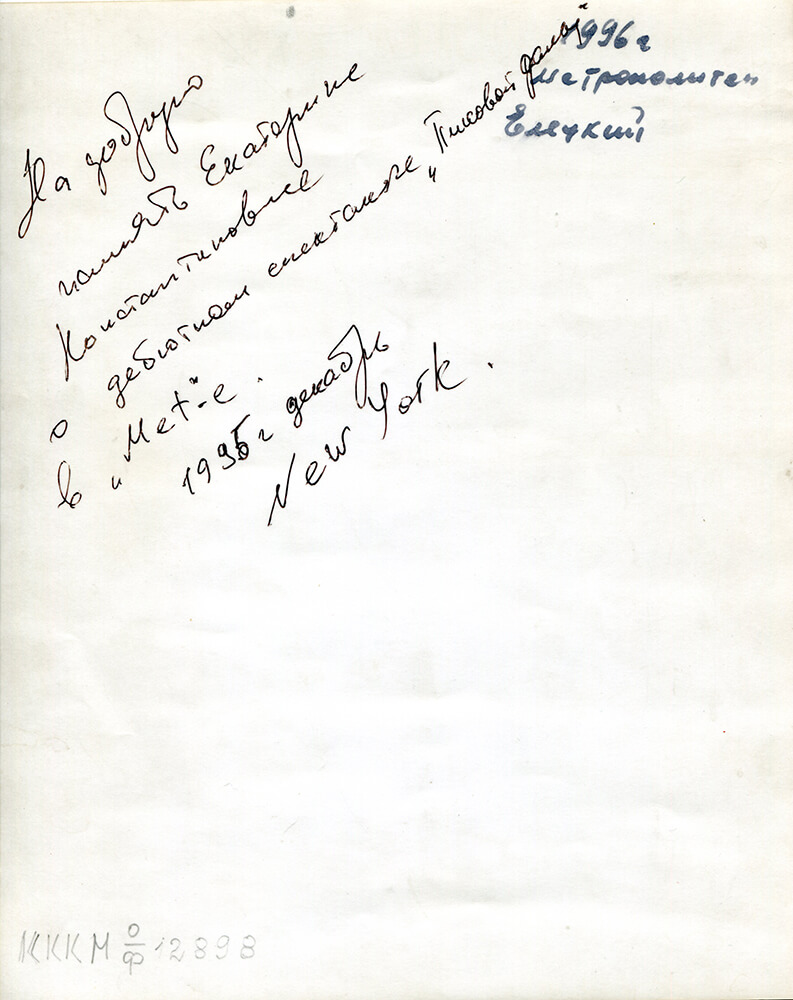 1996г
Метрополитен
Елецкий
На добрую
память Екатерине
Константиновне
о дебютном спектакле „Пиковой дамы"
в „Met"-е.
1995г декабрь
New York.
КККМ о/ф 12898